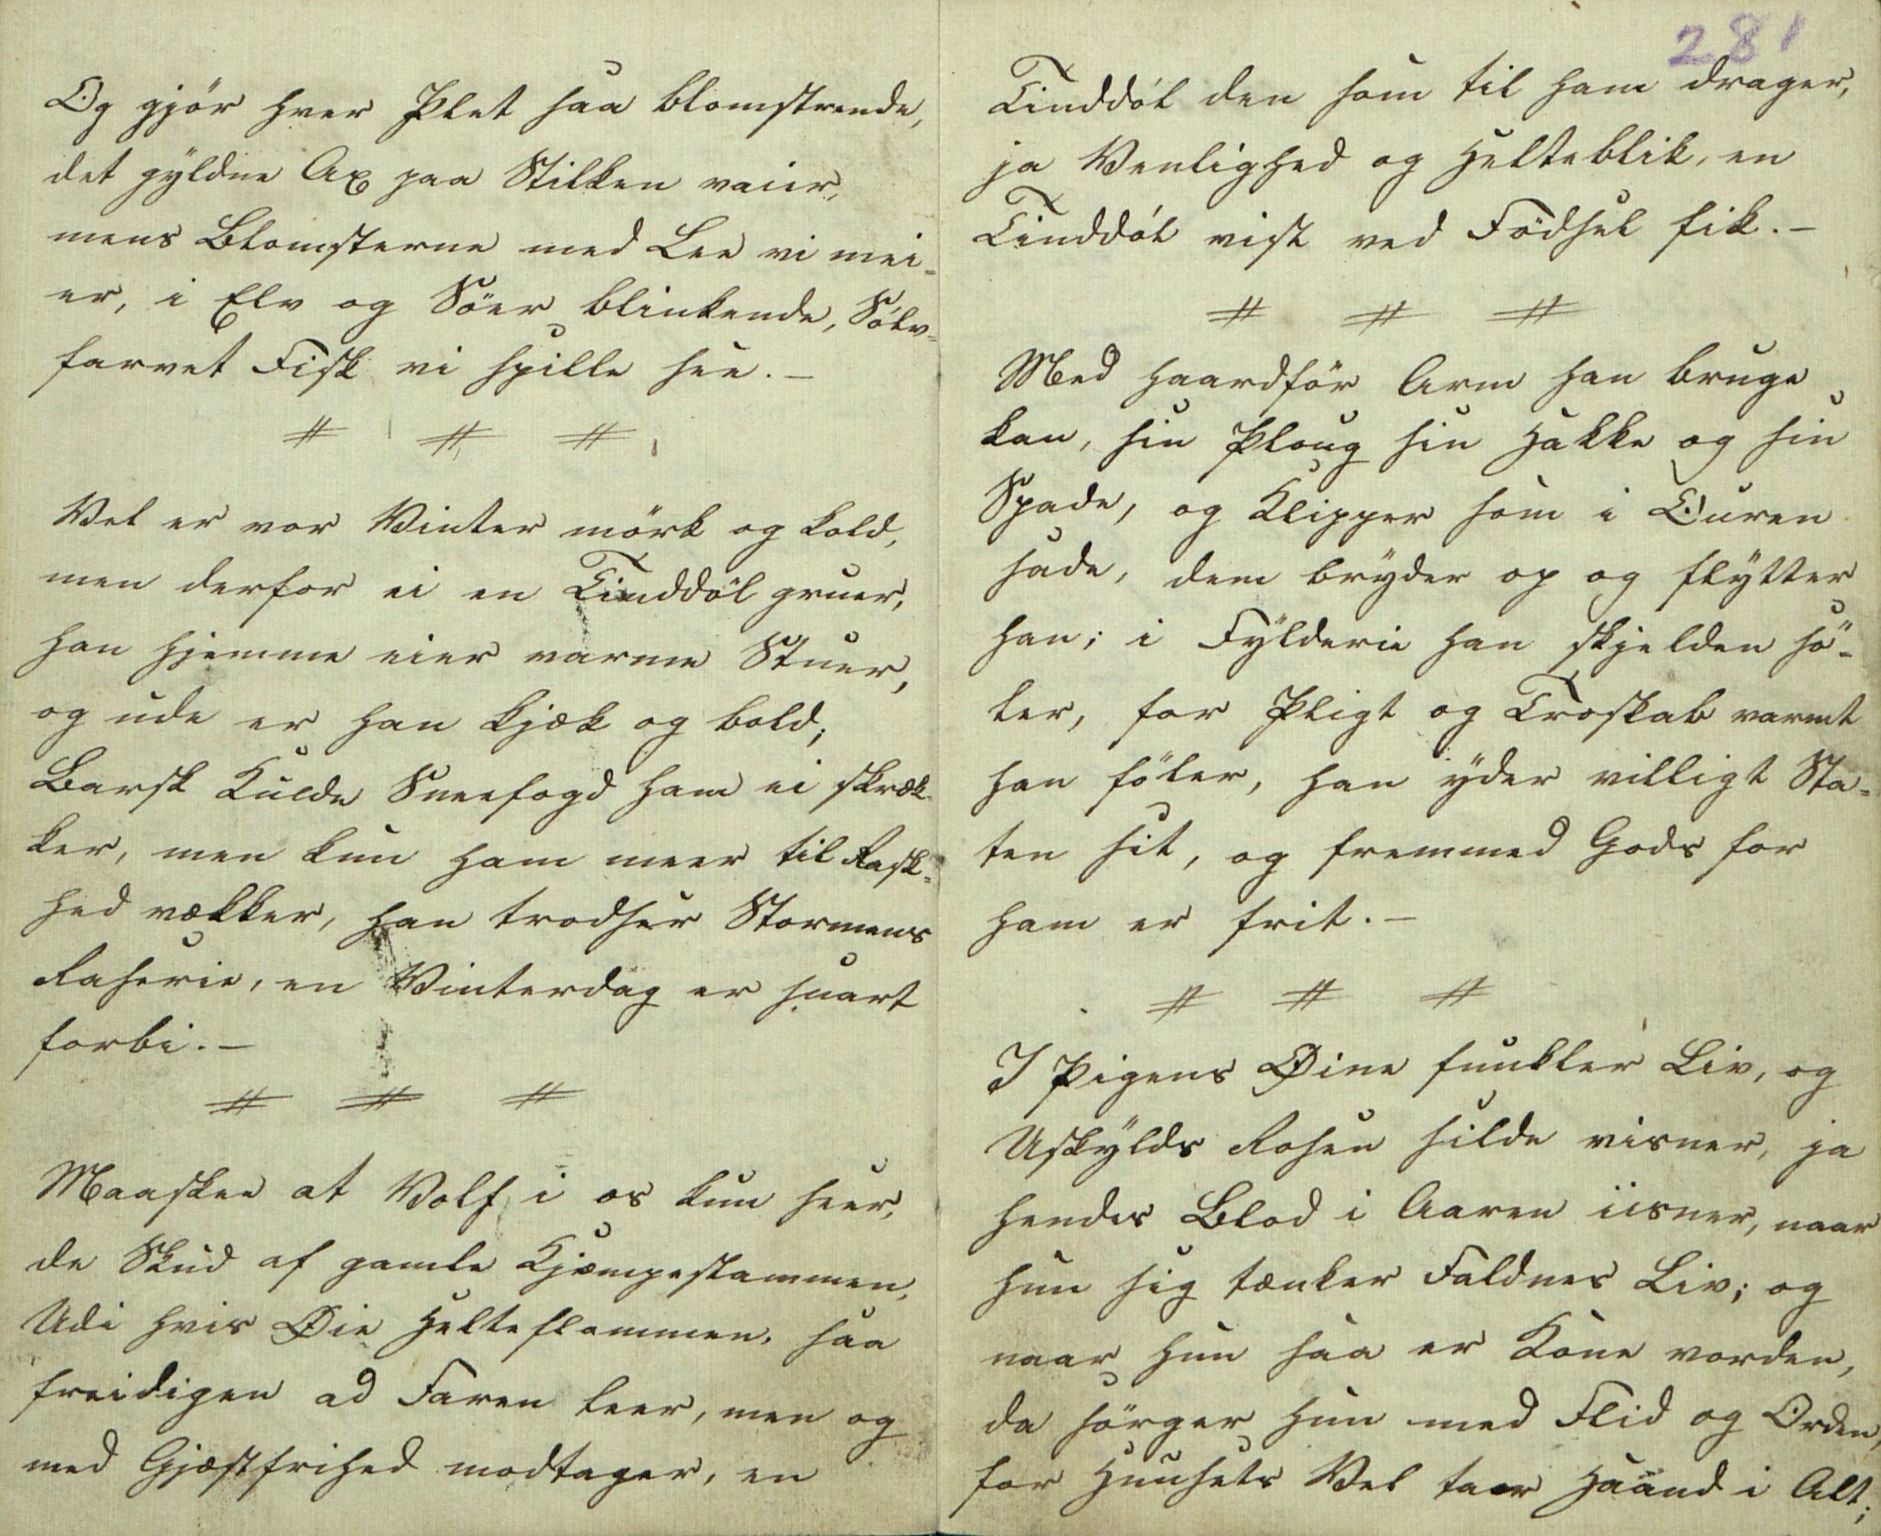 Og gjör hver Plet saa blomstrende,
det gyldne Ax paa Stilken vaier,
mens Blomsterne med Lee vi mei-
er, i Elv og Söer blinkende, Sölv-
farvet Fisk vi spille see. –
# # #
Vel er vor Vinter mörk og kold,
men derfor ei en Tinddöl gruer,
han hjemme eier varme Stuer,
og ude er han kjæk og bold;
Barsk Kulde Sneefogd ham ei skræk-
ker, men kun ham meer til Rask-
hed vækker, han trodser Stormens
Raserie, en Vinterdag er snart
forbi. –
# # #
Maaskee at Volf i os kun seer,
de Skud af gamle Kjæmpestammen,
Udi hvis Øie Helteflammen, saa
freidigen ad Faren leer, men og
med Gjæstfrihed modtager, en
281
Tinddöl den som til ham drager,
ja Venlighed og Helteblik, en
Tinddöl vist ved Födsel fik. –
# # #
Med haardför Arm han bruge
kan, sin Ploug sin Hakke og sin
Spade, og Klipper som i Uuren
sade, dem bryder op og flytter
han; i Fylderie han skjelden sö-
ler, for Pligt og Troskab varmt
han föler, han yder villigt Sta-
ten sit, og fremmed Gods for
ham er frit. –
# # #
I Pigens Øine funkler Liv, og
Uskylds Rosen silde visner, ja
hendes Blod i Aaren iisner, naar
hun sig tænker Faldnes Liv; og
naar hun saa er Kone vorden,
da sörger hun med Flid og Orden,
for Huusets Vel taer Haand i Alt;